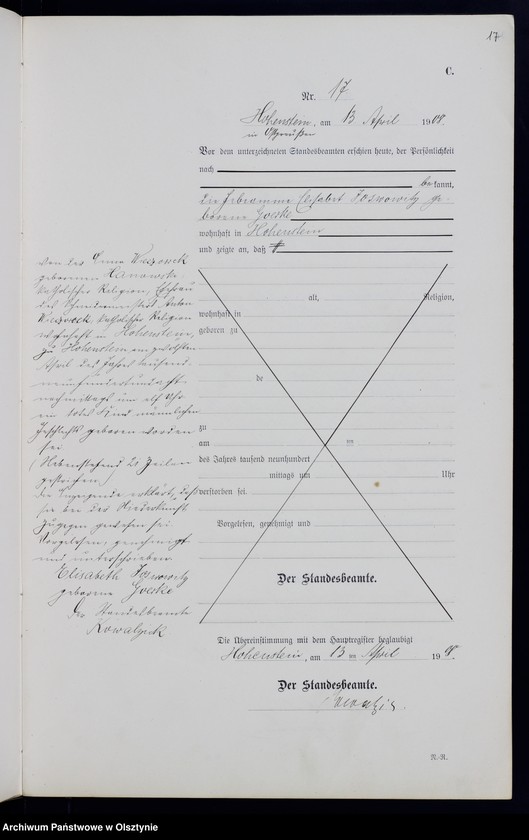 17
C.
Nr. 17
Hohenstein, am 13 April 1908.
in Ostpreußen
Vor dem unterzeichneten Standesbeamten erschien heute, der Persönlichkeit
nach
bekannt,
die Hebamme Elisabet ge-
borene Goerke
wohnhaft in Hohenstein
und zeigte an, daß
alt, Religion,
wohnhaft in
geboren zu
de
zu
am ten
des Jahres tausend neunhundert
mittags um Uhr
verstorben sei.
Vorgelesen, genehmigt und
Der Standesbeamte.
von der Anna
geborenen
katholischer Religion, Ehefrau
des Schneidermeisters Anton
katholischer Religion
wohnhaft in Hohenstein,
zu Hohenstein am zwölften
April des Jahres tausend
neunhundertundacht
nachmittags um elf Uhr
ein totes Kind männlichen
Geschlechts geboren worden
sei
(Nebenstehend 21 Zeilen
gestrichen.)
Die Anzeigende erklärt, daß
sie bei der Niederkunft
zugegen gewesen sei
Vorgelesen, genehmigt
und unterschrieben
Elisabeth
geborene Goerke
Der Standesbeamte
Kowalzick
Die Übereinstimmung mit dem Hauptregister beglaubigt
Hohenstein, am 13 ten April 1908.
Der Standesbeamte.
Kowalzick.
N.-R.
Archiwum Państwowe w Olsztynie